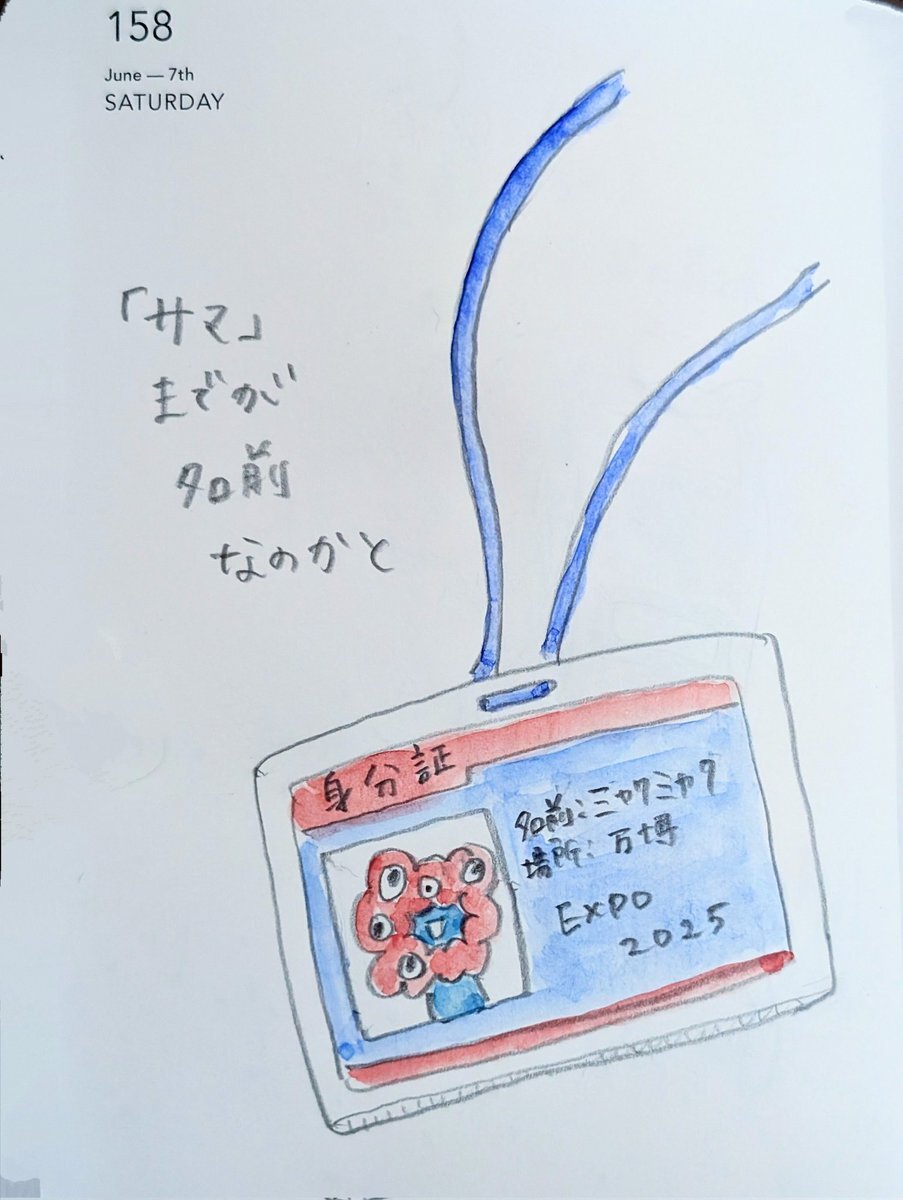 158
June — 7th
SATURDAY
「サマ」
までが
名前
なのかと
身分証
名前:ミャクミャク
場所:万博
EXPO
2025